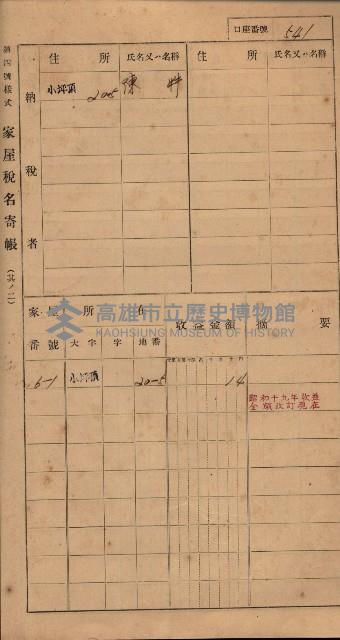 口座番號 541
第四號樣式 家屋稅名寄帳 (其ノ二)
住所 氏名又ハ名稱 住所 氏名又ハ名稱
納稅者
小坪頂 20-5 陳
高雄市立歷史博物館
KAOHSIUNG MUSEUM OF HISTORY
家屋所在 收益金額 摘要
番號 大字 字 地番
6-1 小坪頂 20-5 14
昭和十九年收益
金額改訂現在